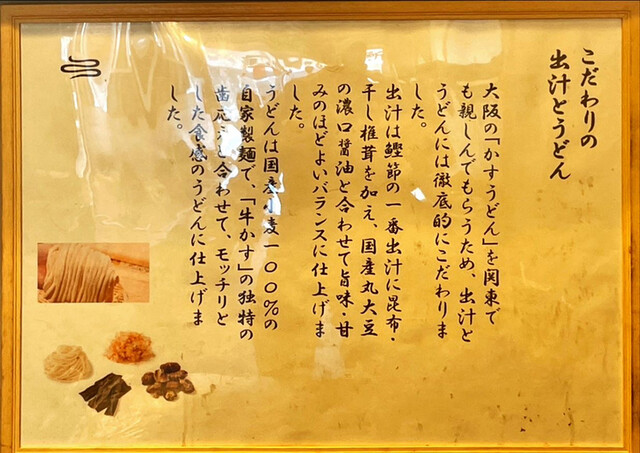 こだわりの
出汁とうどん
大阪の「かすうどん」を関東で
も親しんでもらうため、出汁と
うどんには徹底的にこだわりま
した。
出汁は鰹節の一番出汁に昆布・
干し椎茸を加え、国産丸大豆
の濃口醤油と合わせて旨味・甘
みのほどよいバランスに仕上げま
した。
うどんは国産小麦一〇〇%の
自家製麺で、「牛かす」の独特の
歯応えと合わせて、モッチリと
した食感のうどんに仕上げま
した。